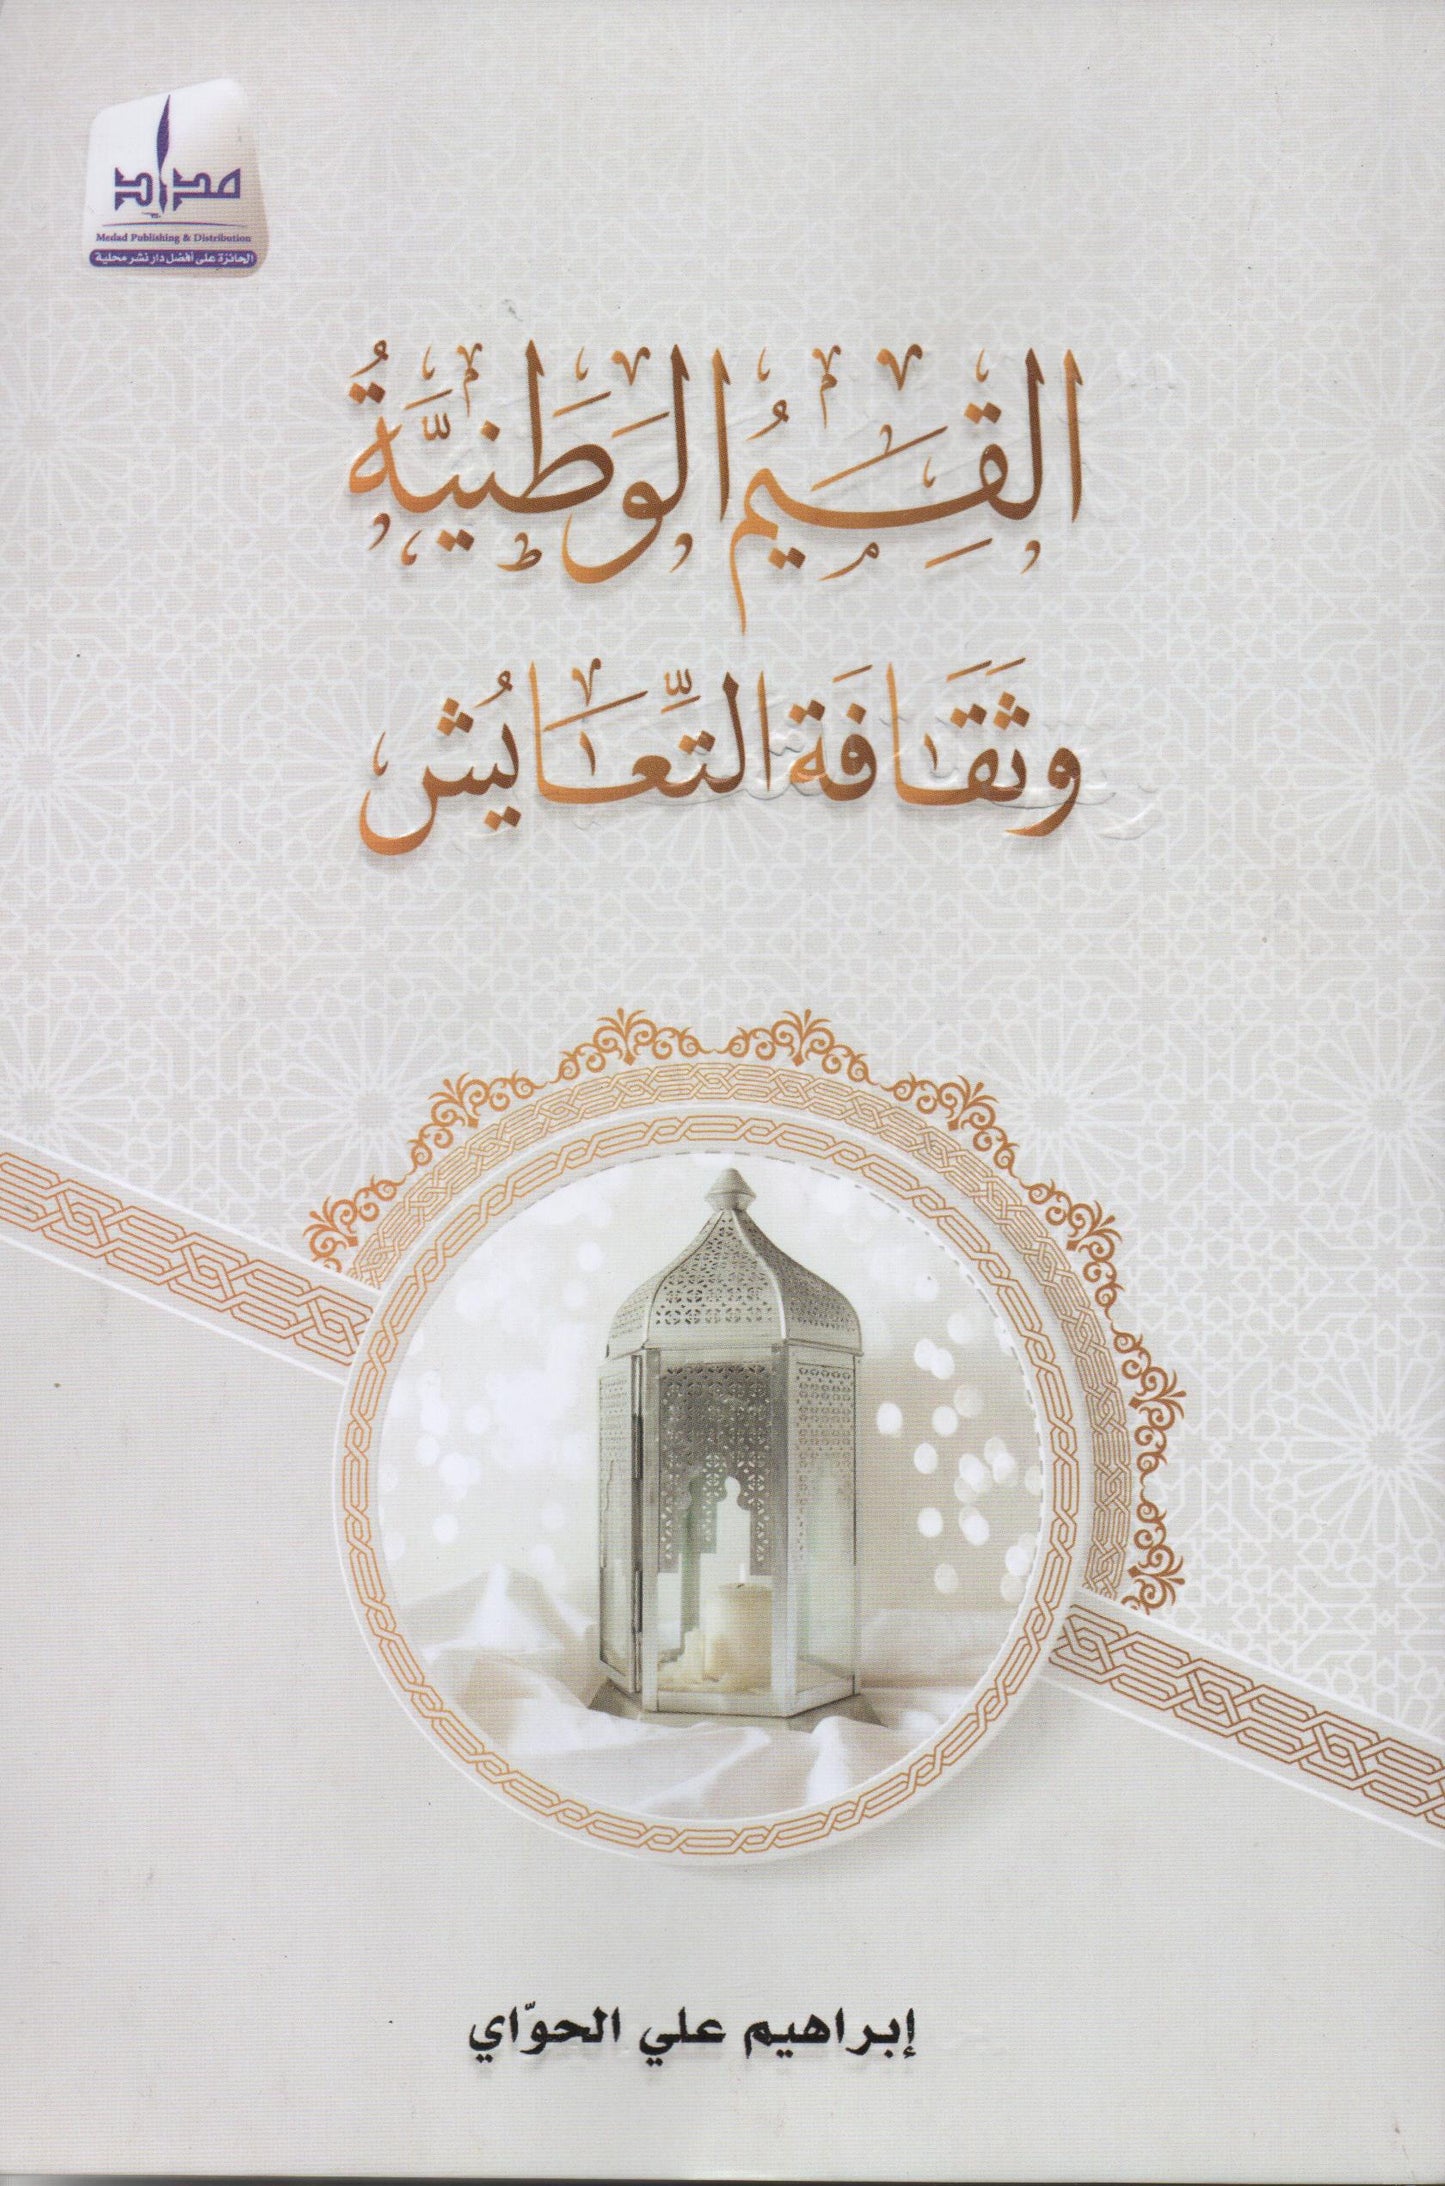 مداد
Medad Publishing & Distribution
الحائزة على أفضل دار نشر محلية
القِيَمُ الوَطَنِيَّةُ
وَثَقَافَةُ التَّعَايُشِ
إبراهيم علي الحوّاي